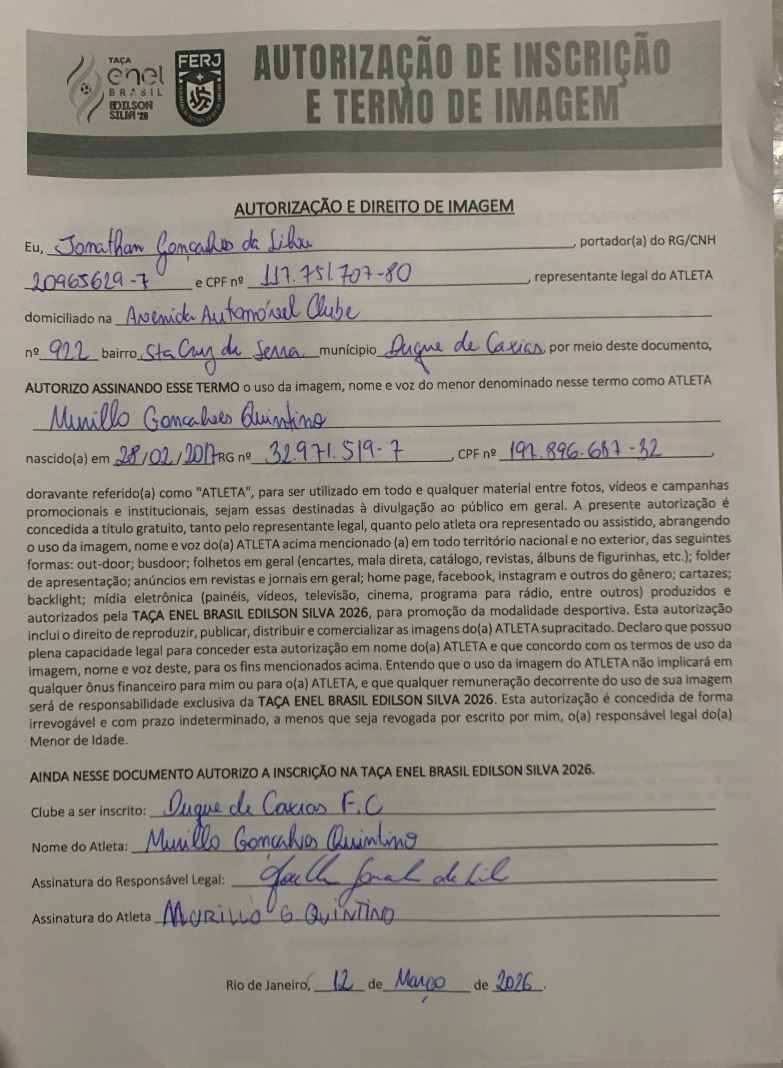 TAÇA
enel
BRASIL
EDILSON
SILVA '26
FERJ
AUTORIZAÇÃO DE INSCRIÇÃO
E TERMO DE IMAGEM
AUTORIZAÇÃO E DIREITO DE IMAGEM
Eu, Jonathan Gonçalves da Silva, portador(a) do RG/CNH
20965629-7 e CPF nº 117.751.707-80, representante legal do ATLETA
domiciliado na Avenida Automóvel Clube
nº 922 bairro Sta Cruz da Serra munícipio Duque de Caxias, por meio deste documento,
AUTORIZO ASSINANDO ESSE TERMO o uso da imagem, nome e voz do menor denominado nesse termo como ATLETA
Murillo Goncalves Quintino
nascido(a) em 28/02/2017 RG nº 32.971.519-7, CPF nº 197.896.687-32,
doravante referido(a) como "ATLETA", para ser utilizado em todo e qualquer material entre fotos, vídeos e campanhas
promocionais e institucionais, sejam essas destinadas à divulgação ao público em geral. A presente autorização é
concedida a título gratuito, tanto pelo representante legal, quanto pelo atleta ora representado ou assistido, abrangendo
o uso da imagem, nome e voz do(a) ATLETA acima mencionado (a) em todo território nacional e no exterior, das seguintes
formas: out-door; busdoor; folhetos em geral (encartes, mala direta, catálogo, revistas, álbuns de figurinhas, etc.); folder
de apresentação; anúncios em revistas e jornais em geral; home page, facebook, instagram e outros do gênero; cartazes;
backlight; mídia eletrônica (painéis, vídeos, televisão, cinema, programa para rádio, entre outros) produzidos e
autorizados pela TAÇA ENEL BRASIL EDILSON SILVA 2026, para promoção da modalidade desportiva. Esta autorização
inclui o direito de reproduzir, publicar, distribuir e comercializar as imagens do(a) ATLETA supracitado. Declaro que possuo
plena capacidade legal para conceder esta autorização em nome do(a) ATLETA e que concordo com os termos de uso da
imagem, nome e voz deste, para os fins mencionados acima. Entendo que o uso da imagem do ATLETA não implicará em
qualquer ônus financeiro para mim ou para o(a) ATLETA, e que qualquer remuneração decorrente do uso de sua imagem
será de responsabilidade exclusiva da TAÇA ENEL BRASIL EDILSON SILVA 2026. Esta autorização é concedida de forma
irrevogável e com prazo indeterminado, a menos que seja revogada por escrito por mim, o(a) responsável legal do(a)
Menor de Idade.
AINDA NESSE DOCUMENTO AUTORIZO A INSCRIÇÃO NA TAÇA ENEL BRASIL EDILSON SILVA 2026.
Clube a ser inscrito: Duque de Caxias F.C
Nome do Atleta: Murillo Goncalves Quintino
Assinatura do Responsável Legal:
Assinatura do Atleta MURILLO G. QUINTINO
Rio de Janeiro, 12 de Março de 2026.